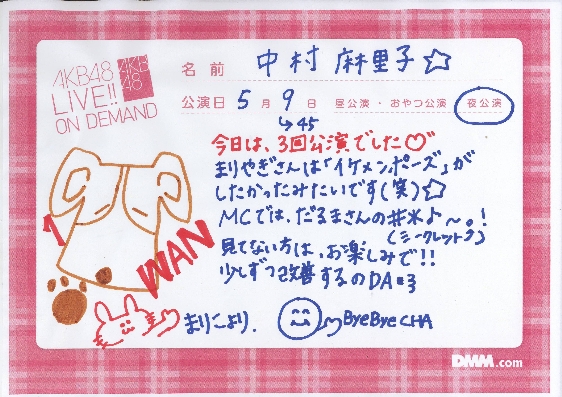 AKB48
LIVE!!
ON DEMAND
AKB
48
名前 中村 麻里子☆
公演日 5月9日 昼公演・おやつ公演 夜公演
↳45
今日は、3回公演でした♡
まりやぎさんは「イケメンポーズ」が
したかったみたいです(笑)☆
MCでは、だるまさんの#米♪〜。!
(シークレット♪)
見てない方は、お楽しみで!!
少しずつ改善するのDA=3
1
WAN
まりこより.
ByeByeCHA
DMM.com